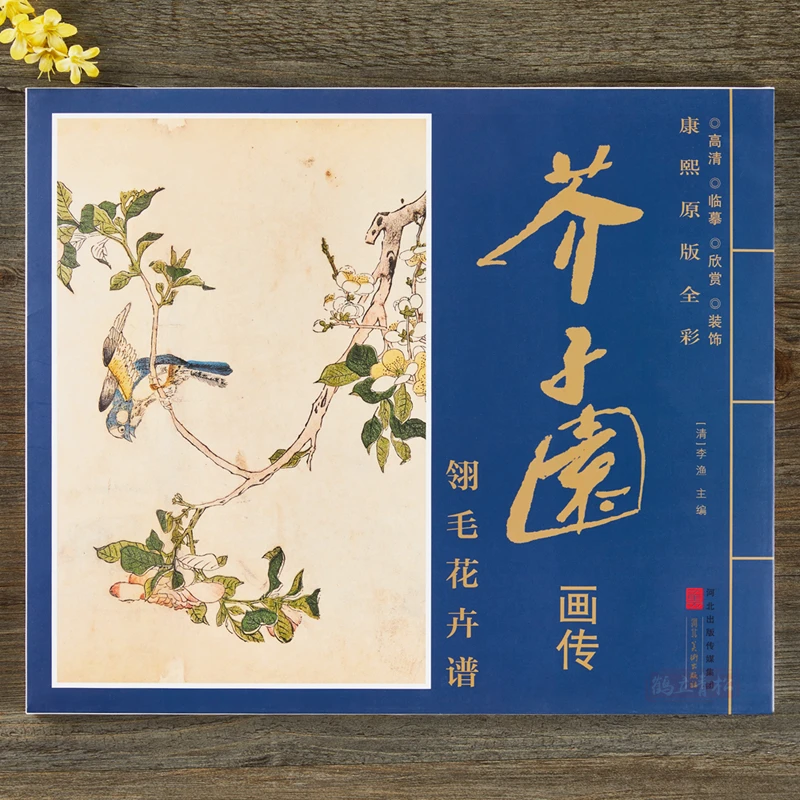 ◎高清 ◎临摹 ◎欣赏 ◎装饰
康熙原版全彩
芥子園
画传
翎毛花卉谱
[清]李渔 主编
河北出版传媒集团
河北美术出版社
鹤立青松